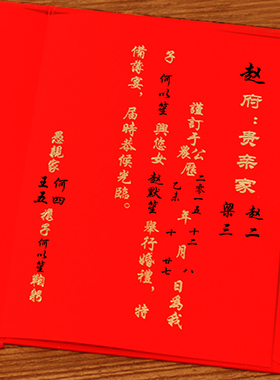 赵府:贵亲家 赵二 梁三
謹訂于公農曆二零一五乙未年十二十月八廿七日為我
子何以笙與您女赵默笙舉行婚禮,特
備薄宴,届時恭候光臨。
愚親家何四王五携子何以笙鞠躬